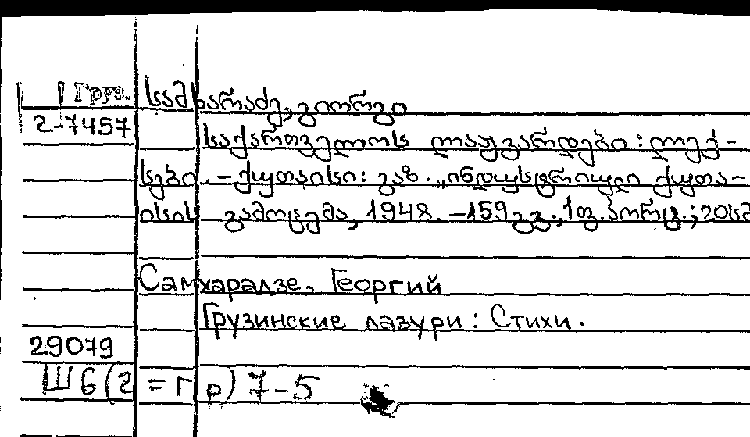 Груз. სამხარაძე, გიორგი
2-7457 საქართველოს ლაჟვარდები: ლექ-
სები. - ქუთაისი: გაზ. „ინდუსტრიული ქუთა-
ისის გამოცემა, 1948. - 159 გვ., 1 ფ. პორტ.; 20სმ
Самхарадзе, Георгий
Грузинские лазури: Стихи.
29079
Ш6(2=Гр)7-5